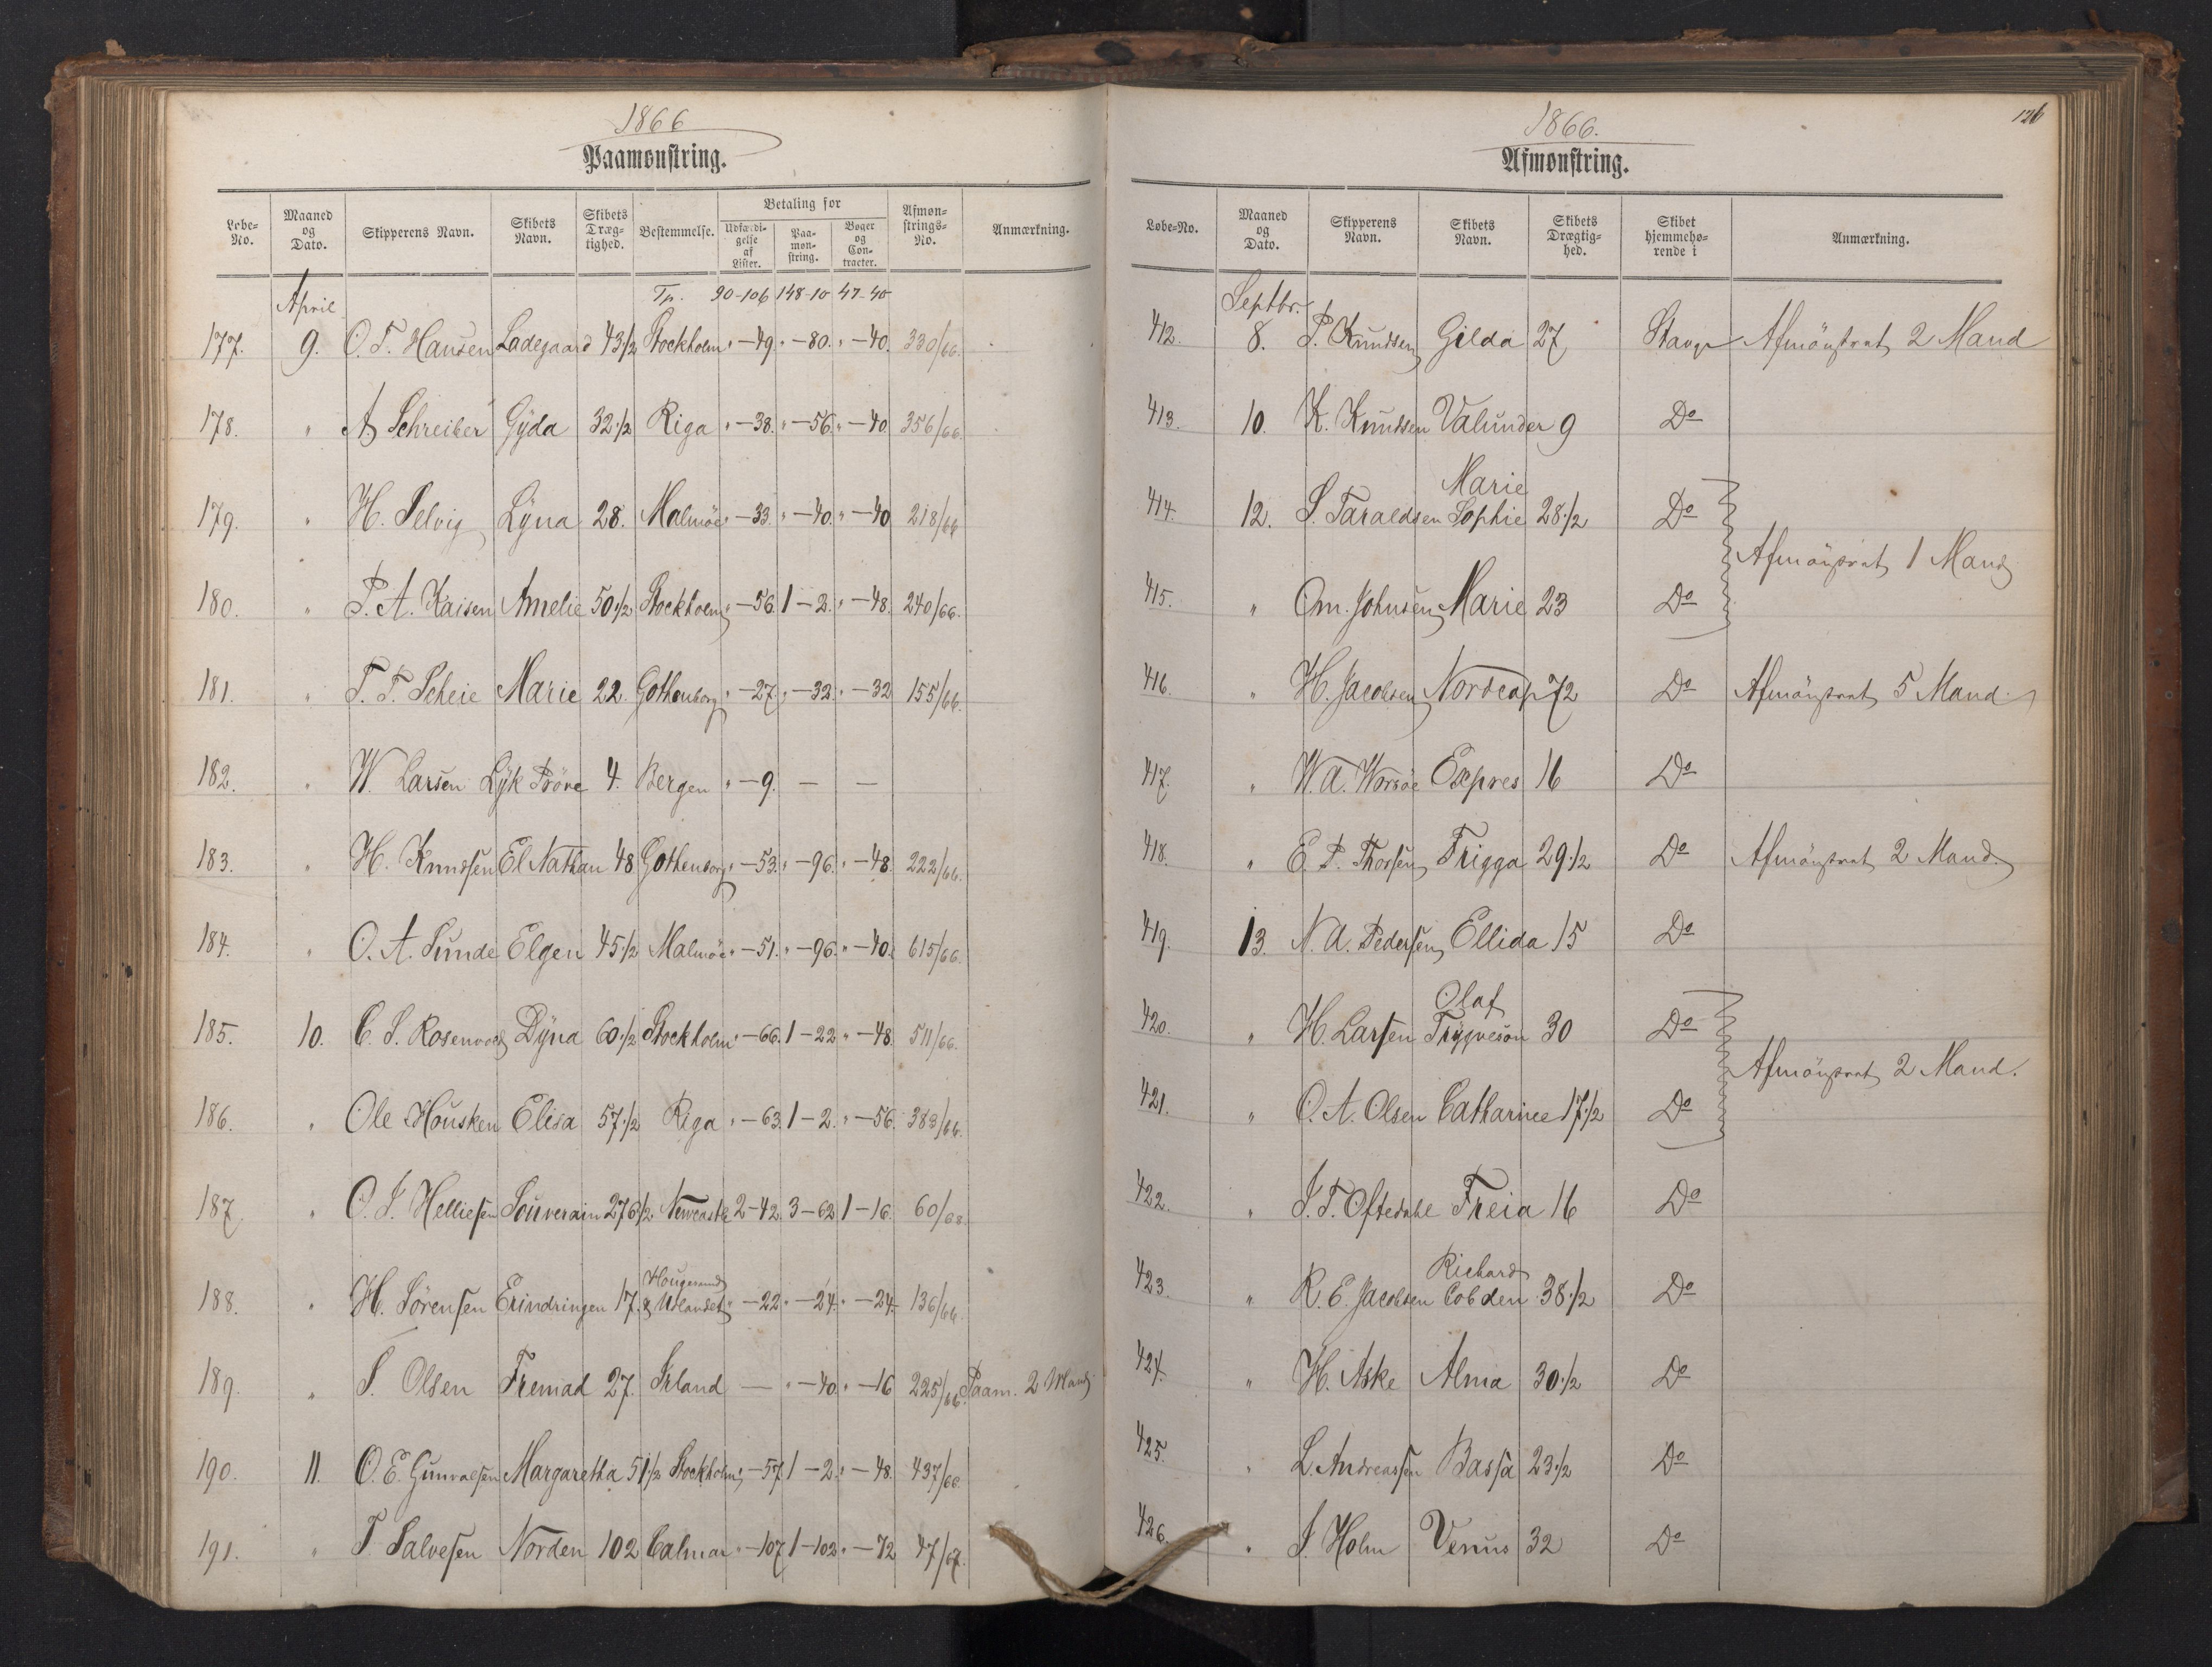 1866
Paamønstring.
Løbe-No. | Maaned og Dato. | Skipperens Navn. | Skibets Navn. | Skibets Drægtighed. | Bestemmelse. | Betaling for | Udfærdigelse af Lister. | Paamønstring. | Bøger og Contracter. | Afmønstrings-No. | Anmærkning.
April | Tp. | 90-106 | 148-10 | 47-40
177. | 9. | O. T. Hansen | Ladegaard | 43 1/2 | Stockholm | " - 49. | " - 80. | " - 40. | 330/66.
178. | " | A. Schreiber | Gÿda | 32 1/2 | Riga | " - 38. | " - 56. | " - 40 | 356/66.
179. | " | H. Selvig | Lÿna | 28. | Malmöe | " - 33. | " - 40. | " - 40 | 218/66
180. | " | P. A. Kaisen | Amelie | 50 1/2 | Stockholm | " - 56. | 1 - 2. | " - 48. | 240/66.
181. | " | T. T. Scheie | Marie | 22. | Gothenborg | " - 27. | " - 32. | " - 32 | 155/66.
182. | " | W. Larsen | Lÿk Pröve | 4. | Bergen | " - 9. | — | —
183. | " | H. Knudsen | El Nathan | 48 | Gothenborg | " - 53. | " - 96. | " - 48. | 222/66.
184. | " | O. A. Sunde | Elgen | 45 1/2 | Malmöe | " - 51. | " - 96. | " - 40. | 615/66.
185. | 10. | C. S. Rosenvold | Dÿna | 60 1/2 | Stockholm | " - 66. | 1 - 22 | " - 48. | 511/66.
186. | " | Ole Housken | Elisa | 57 1/2 | Riga | " - 63. | 1 - 2. | " - 56. | 383/66.
187. | " | O. J. Helliesen | Souverain | 276 1/2 | Newcastle | 2 - 42. | 3 - 62. | 1 - 16. | 60/68.
188. | " | H. Sörensen | Erindringen | 17. | Hougesund & Udlandet | " - 22. | " - 24. | " - 24. | 136/66.
189. | " | S. Olsen | Fremad | 27. | Irland | — | " - 40. | " - 16 | 225/66. | Paam. 2 Mand
190. | 11. | O. E. Gunvalsen | Margaretha | 51 1/2 | Stockholm | " - 57. | 1 - 2. | " - 48. | 437/66.
191. | " | T. Salvesen | Norden | 102 | Calmar | " - 107 | 1 - 102 | " - 72 | 47/67.
1866.
126
Afmønstring.
Løbe-No. | Maaned og Dato. | Skipperens Navn. | Skibets Navn. | Skibets Drægtighed. | Skibet hjemmehørende i | Anmærkning.
Septbr.
412. | 8. | P. Knudsen | Gilda | 27 | Stavgr | Afmönstrat 2 Mand
413. | 10. | K. Knudsen | Valunder | 9 | Do
414. | 12. | S. Taraldsen | Marie Sophie | 28 1/2 | Do
Afmönstrat 1 Mand
415. | " | Om. Johnsen | Marie | 23 | Do
416. | " | H. Jacobsen | Nordcap | 72 | Do | Afmönstrat 5 Mand.
417. | " | W. A. Worsöe | Expres | 16 | Do
418. | " | E. P. Thorsen | Frigga | 29 1/2 | Do | Afmönstrat 2 Mand.
419. | 13. | N. A. Pedersen | Ellida | 15 | Do
420. | " | H. Larsen | Olaf Trÿgveson | 30 | Do
Afmönstrat 2 Mand.
421. | " | O. A. Olsen | Catharine | 17 1/2 | Do
422. | " | J. T. Oftedahl | Freia | 16 | Do
423. | " | R. E. Jacobsen | Richard Cobden | 38 1/2 | Do
424. | " | H. Aske | Alma | 30 1/2 | Do
425. | " | L. Andreassen | Bassa | 23 1/2 | Do
426. | " | J. Holm | Venus | 32 | Do